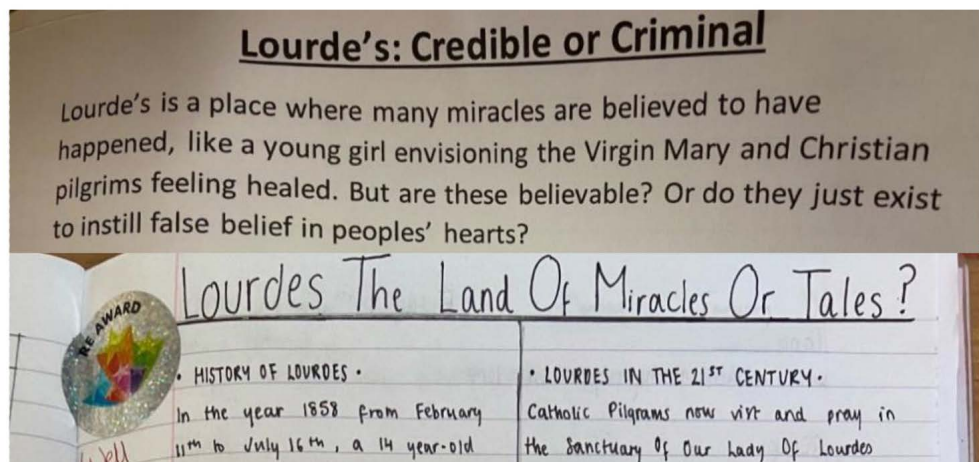 Lourde's: Credible or Criminal
Lourde's is a place where many miracles are believed to have
happened, like a young girl envisioning the Virgin Mary and Christian
pilgrims feeling healed. But are these believable? Or do they just exist
to instill false belief in peoples' hearts?
Lourdes The Land Of Miracles Or Tales?
RE AWARD
• HISTORY OF LOURDES •
In the year 1858 from February
11th to July 16th, a 14 year-old
Well
• LOURDES IN THE 21ST CENTURY •
Catholic Pilgrams now and pray in
the Sanctuary Of Our Lady Of Lourdes